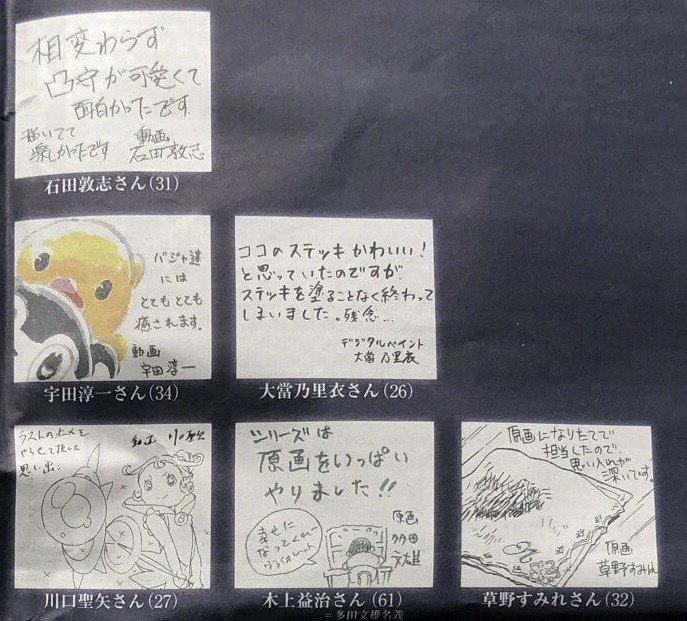 相変わらず
凸守が可愛くて
面白かったです
描いてて
楽しかったです
動画
石田敦志
石田敦志さん(31)
バジャ達
には
とてもとても
癒されます。
動画
宇田淳一
宇田淳一さん(34)
ココのステッキかわいい!
と思っていたのですが
ステッキを塗ることなく終わって
しまいました。残念…
デジタルペイント
大當乃里衣
大當乃里衣さん(26)
ラストの止メを
やらせて頂いた
思い出。
川口聖矢さん(27)
シリーズは
原画をいっぱい
やりました!!
幸せに
なってくれ
ヴァイオレット
原画
多田
文雄
木上益治さん(61)
=多田文雄名義
原画になりたてで
担当したので
思い入れが
深いです。
原画
草野すみれ
草野すみれさん(32)